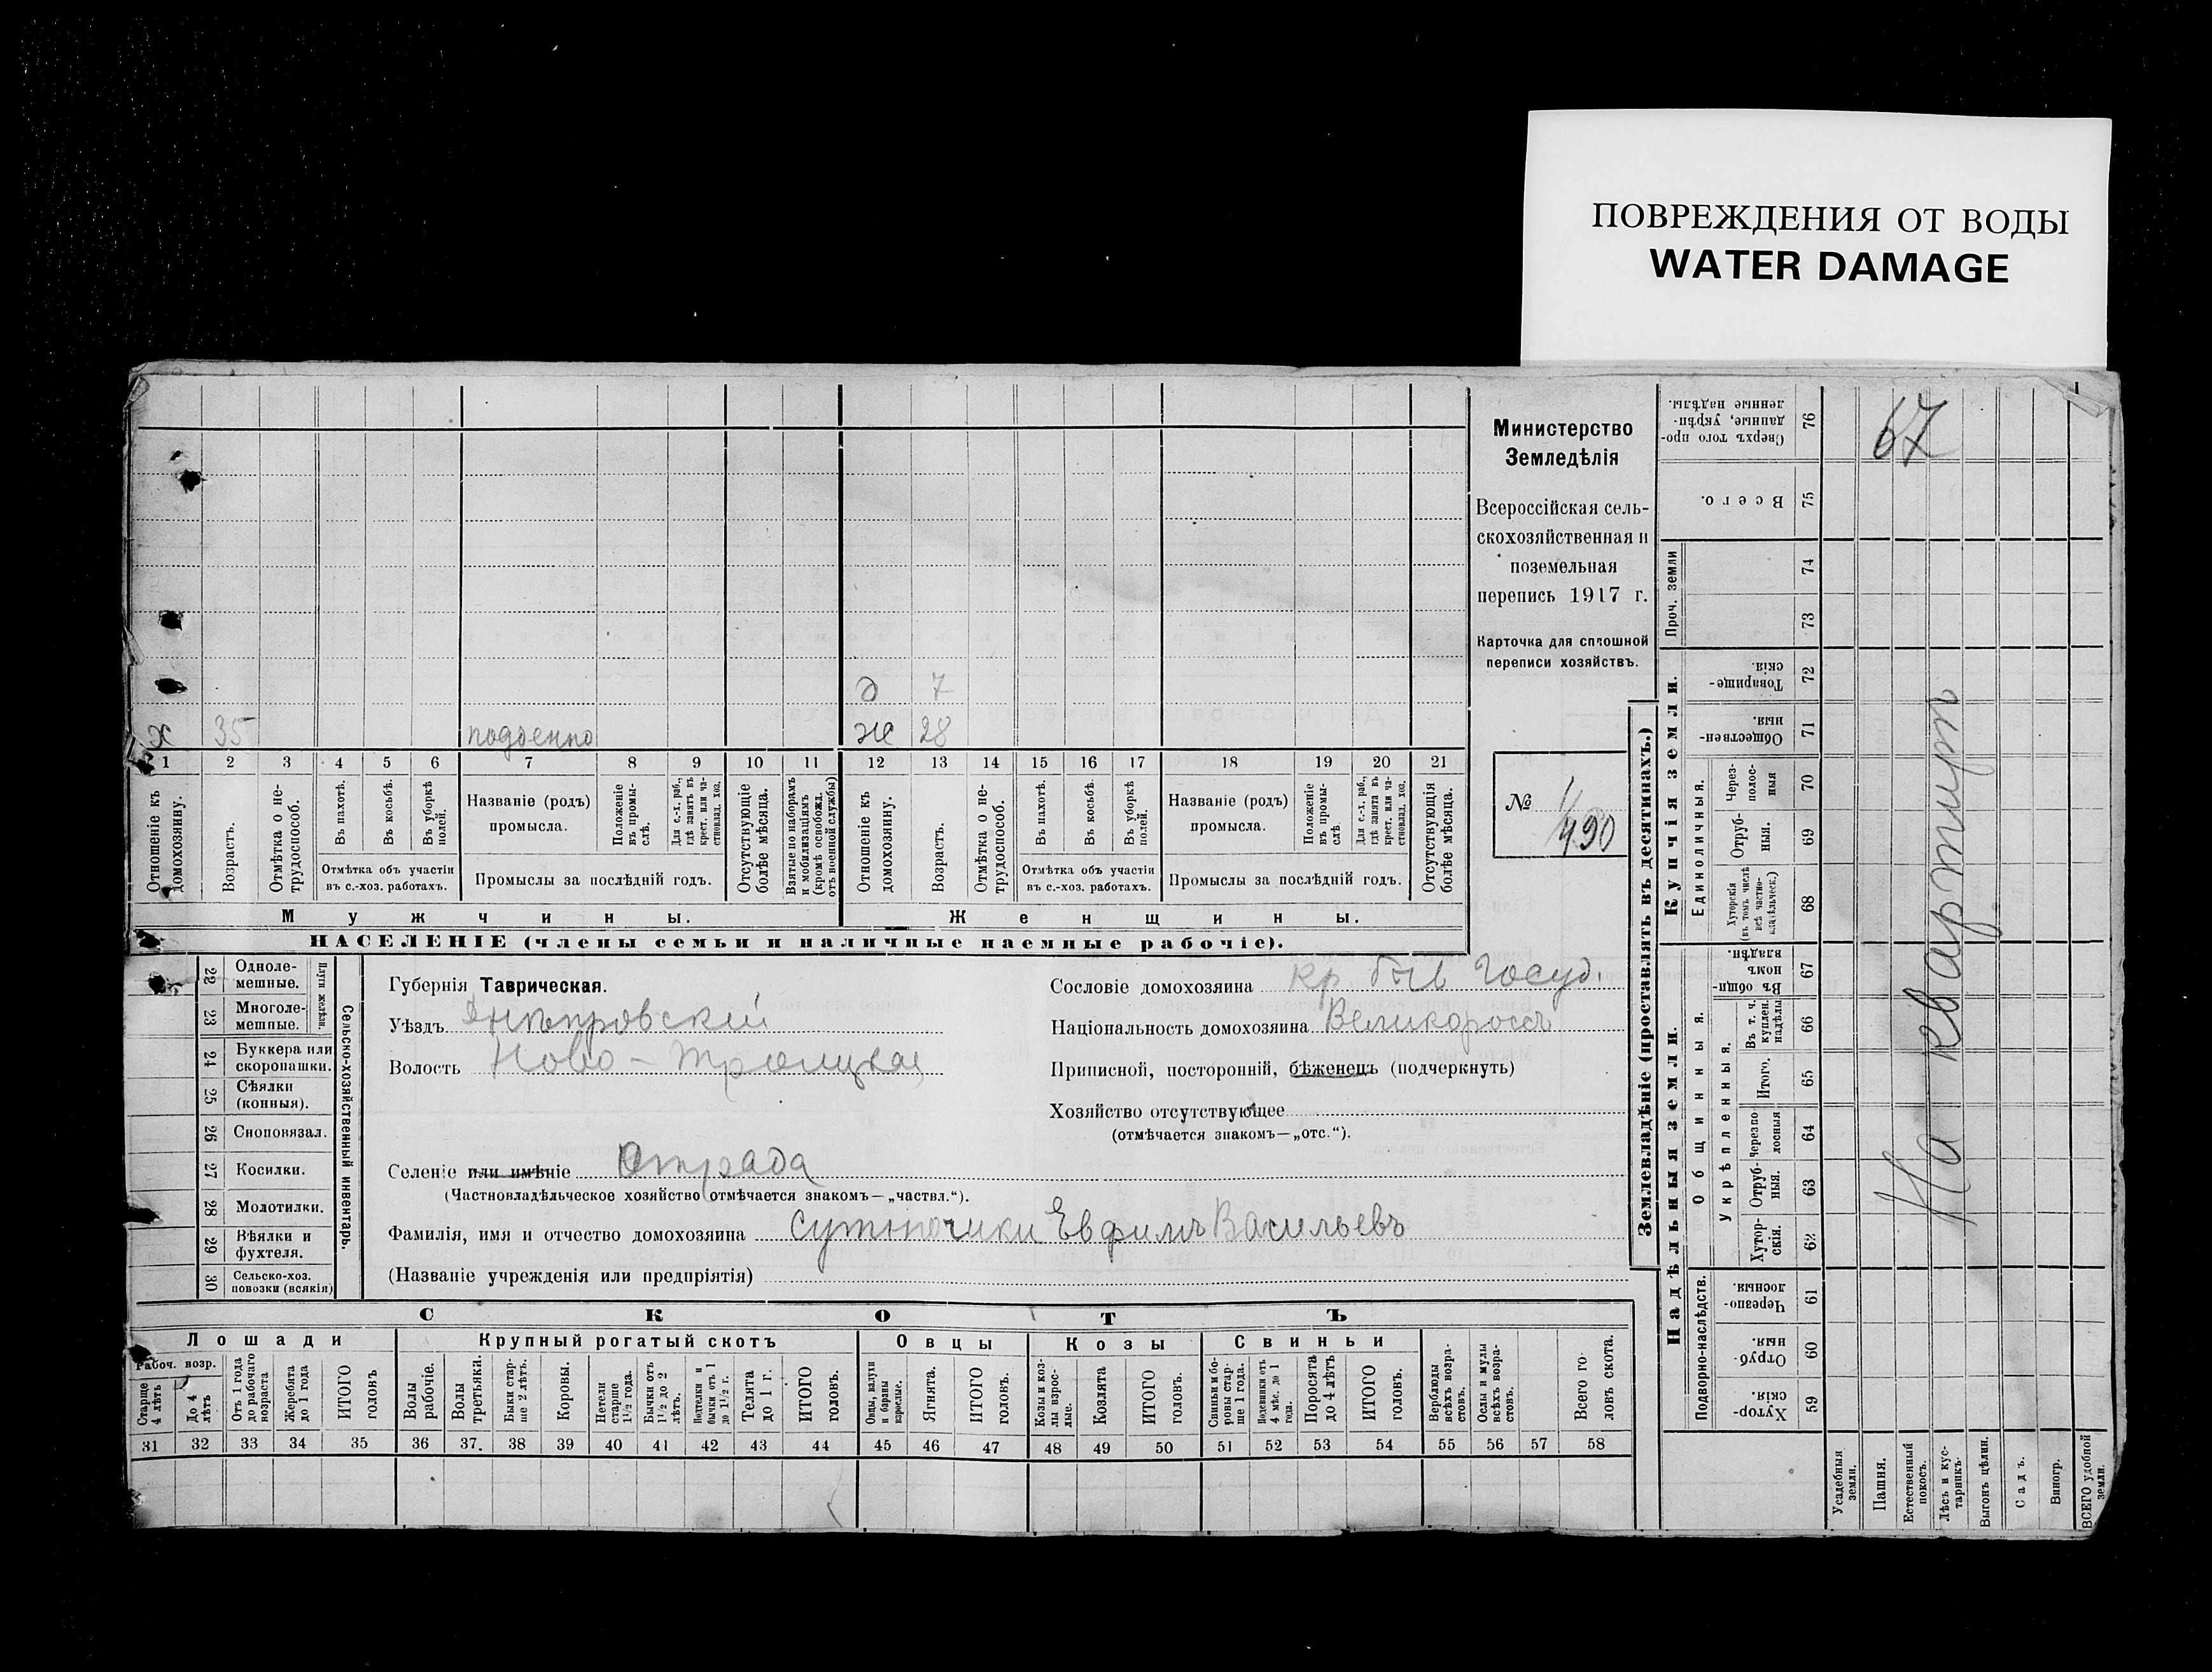 ПОВРЕЖДЕНИЯ ОТ ВОДЫ
WATER DAMAGE
д 7
х 35 поденно ж 28
1 2 3 4 5 6 7 8 9 10 11 12 13 14 15 16 17 18 19 20 21
Отношеніе къ домохозяину.
Возрастъ.
Отмѣтка о не-трудоспособ.
Въ пахотѣ.
Въ косьбѣ.
Въ уборкѣ полей.
Отмѣтка объ участіи
въ с.-хоз. работахъ.
Названіе (родъ)
промысла.
Положеніе въ промы-слѣ.
Для с.-х. раб., гдѣ занятъ въ крест. или ча-стновлад. хоз.
Промыслы за послѣдній годъ.
Отсутствующіе болѣе мѣсяца.
Взятые по наборамъ и мобилизаціямъ (кромѣ освобожд. отъ военной службы)
Отношеніе къ домохозяину.
Возрастъ.
Отмѣтка о не-трудоспособ.
Въ пахотѣ.
Въ косьбѣ.
Въ уборкѣ полей.
Отмѣтка объ участіи
въ с.-хоз. работахъ.
Названіе (родъ)
промысла.
Положеніе въ промы-слѣ.
Для с.-х. раб., гдѣ занята въ крест. или ча-стновлад. хоз.
Промыслы за послѣдній годъ.
Отсутствующія болѣе мѣсяца.
Мужчины.
Женщины.
НАСЕЛЕНІЕ (члены семьи и наличные наемные рабочіе).
Министерство
Земледѣлія
Всероссійская сель-
скохозяйственная и
поземельная
перепись 1917 г.
Карточка для сплошной
переписи хозяйствъ.
№ 1/490
22 Одноле-мешные.
23 Многоле-мешные.
Плуги желѣзн.
24 Буккера или скоропашки.
25 Сѣялки (конныя).
26 Сноповязал.
27 Косилки.
28 Молотилки.
29 Вѣялки и фухтеля.
30 Сельско-хоз. повозки (всякія)
Сельско-хозяйственный инвентарь.
Губернія Таврическая.
Уѣздъ Днѣпровскій
Волость Ново-Троицкая
Селеніе или имѣніе Отрада
(Частновладѣльческое хозяйство отмѣчается знакомъ—„частвл.“).
Фамилія, имя и отчество домохозяина Евфимъ Васильевъ
(Названіе учрежденія или предпріятія)
Сословіе домохозяина кр. быв госуд.
Національность домохозяина Великороссъ
Приписной, посторонній, бѣженецъ (подчеркнуть)
Хозяйство отсутствующее
(отмѣчается знакомъ—„отс.“).
СКОТЪ
Лошади
Крупный рогатый скотъ
Овцы
Козы
Свиньи
Рабоч. возр.
Старше 4 лѣтъ
До 4 лѣтъ
Отъ 1 года до рабочаго возраста
Жеребята до 1 года
ИТОГО головъ
Волы рабочіе.
Волы третьяки.
Быки стар-ше 2 лѣтъ.
Коровы.
Нетели старше 1½ года.
Бычки отъ 1½ до 2 лѣтъ.
Подтелки и бычки отъ 1 до 1½ г.
Телята до 1 г.
ИТОГО головъ.
Овцы, валухи и бараны взрослые.
Ягнята.
ИТОГО головъ.
Козы и коз-лы взрос-лые.
Козлята
ИТОГО головъ.
Свиньи и бо-ровы стар-ше 1 года.
Подсвинки отъ 4 мѣс. до 1 года.
Поросята до 4 лѣтъ
ИТОГО головъ.
Верблюды всѣхъ возра-стовъ.
Ослы и мулы всѣхъ возра-стовъ.
Всего го-ловъ скота.
31 32 33 34 35 36 37. 38 39 40 41 42 43 44 45 46 47 48 49 50 51 52 53 54 55 56 57 58
Землевладѣніе (проставлять въ десятинахъ.)
Купчія земли.
Надѣльныя земли.
Проч. земли
Единоличныя.
Общинныя.
Укрѣпленныя.
Подворно-наслѣдств.
Сверхъ того про-данные, укрѣп-ленные надѣлы. 76
Всего. 75
74
73
Товарище-скія. 72
Обществен-ныя. 71
Через-полос-ныя 70
Отруб-ныя. 69
Хуторскія (въ томъ числѣ всѣ частно-владѣльческ.) 68
Въ общин-номъ владѣн. 67
Въ т. ч. куплен. надѣлы 66
Итого. 65
черезпо-лосныя 64
Отруб-ныя. 63
Хутор-скія. 62
Черезпо-лосныя. 61
Отруб-ныя. 60
Хутор-скія. 59
67
На квартирѣ
Усадебныя земли.
Пашня.
Естественный покосъ.
Лѣсъ и кус-тарникъ.
Выгонъ цѣлин.
Садъ.
Виногр.
ВСЕГО удобной земли.